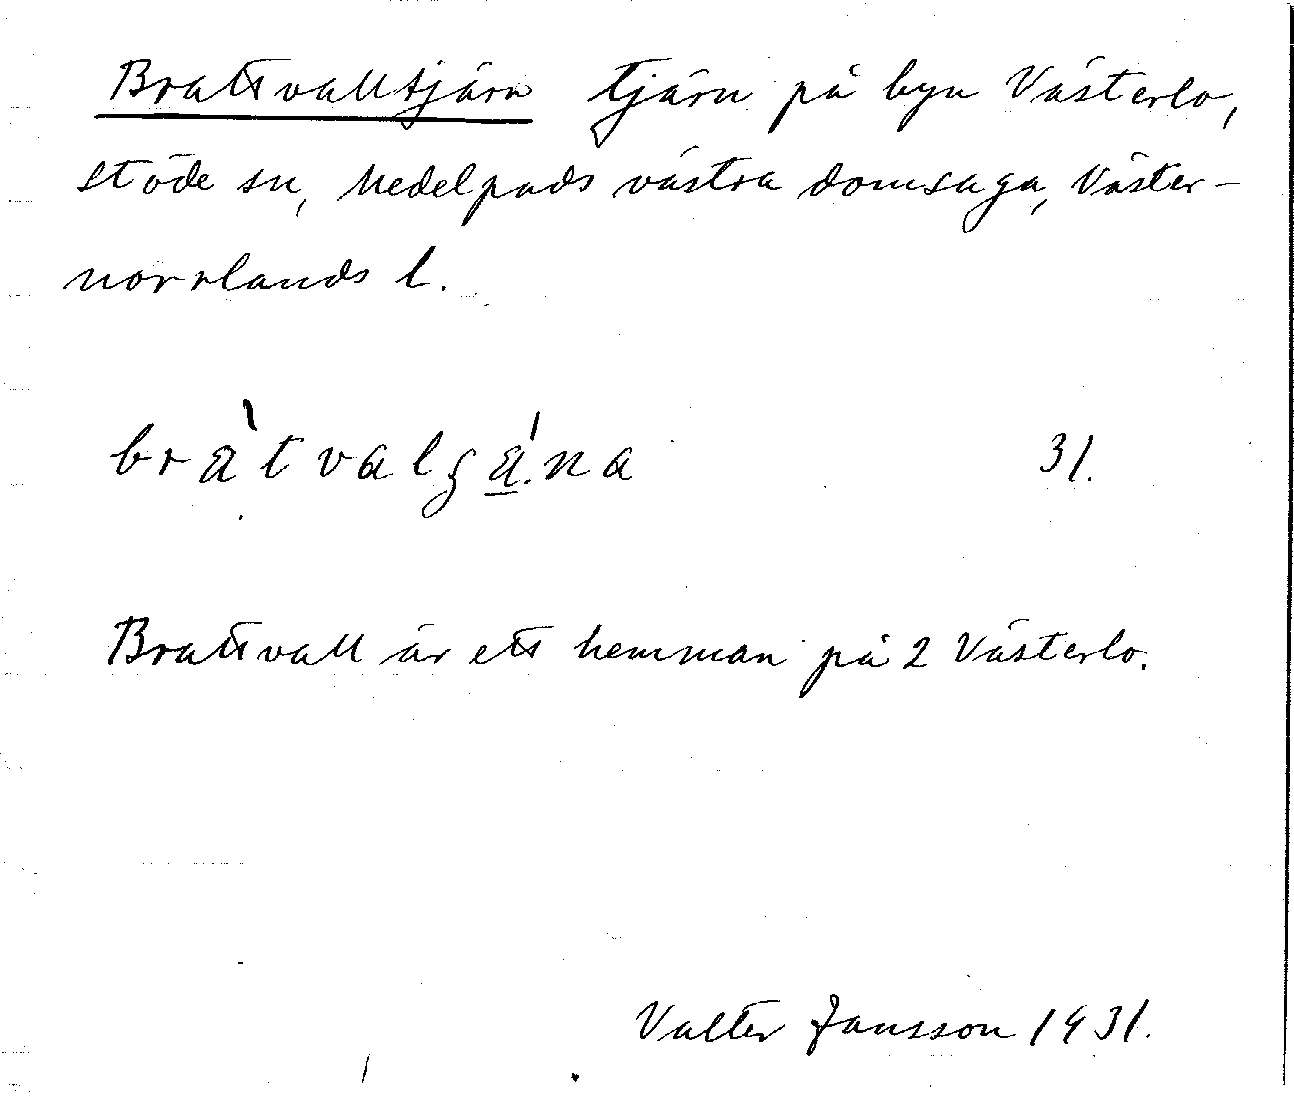 Brattvalltjärn tjärn på byn Västerlo,
Stöde sn, Medelpads västra domsaga, Väster-
norrlands l.
bràtvalʒá.na 31.
Brattvall är ett hemman på 2 Västerlo.
Valter Jansson 1931.